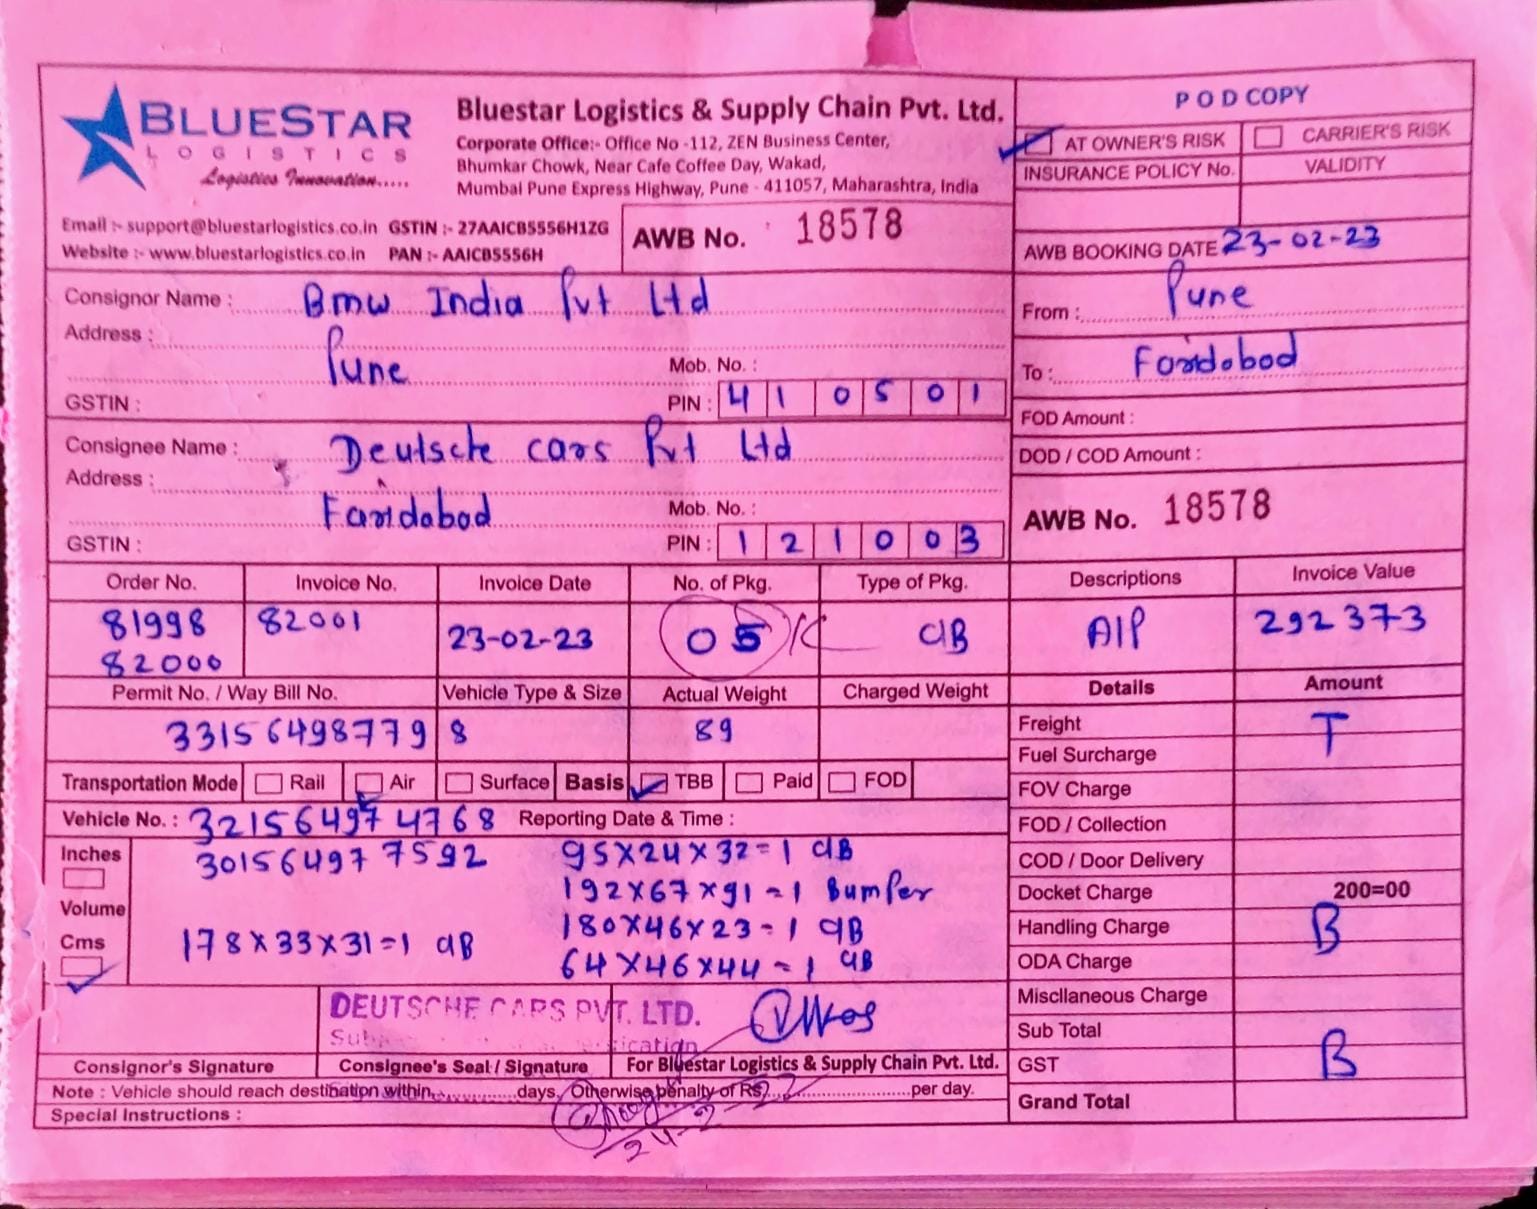 BLUESTAR
LOGISTICS
Logistics Innovation.....
Bluestar Logistics & Supply Chain Pvt. Ltd.
Corporate Office:- Office No -112, ZEN Business Center,
Bhumkar Chowk, Near Cafe Coffee Day, Wakad,
Mumbai Pune Express Highway, Pune - 411057, Maharashtra, India
POD COPY
AT OWNER'S RISK CARRIER'S RISK
INSURANCE POLICY No. VALIDITY
Email :- support@bluestarlogistics.co.in GSTIN :- 27AAICB5556H1ZG
Website :- www.bluestarlogistics.co.in PAN :- AAICB5556H
AWB No. 18578
AWB BOOKING DATE 23-02-23
Consignor Name : Bmw India Pvt Ltd
Address :
Pune
Mob. No. :
GSTIN :
PIN : 410501
From : Pune
To : Faridabad
FOD Amount :
DOD / COD Amount :
Consignee Name : Deutsche cars Pvt Ltd
Address :
Faridabad
Mob. No. :
GSTIN :
PIN : 121003
AWB No. 18578
Order No. Invoice No. Invoice Date No. of Pkg. Type of Pkg. Descriptions Invoice Value
81998 82001 23-02-23 05 CIB AIP 292373
82000
Permit No. / Way Bill No. Vehicle Type & Size Actual Weight Charged Weight Details Amount
331564987798 89
Freight T
Fuel Surcharge
Transportation Mode Rail Air Surface Basis TBB Paid FOD
FOV Charge
Vehicle No. : 321564974768 Reporting Date & Time :
FOD / Collection
Inches 301564977592 95X24X32=1 CIB
COD / Door Delivery
192X67X91=1 Bumper
Docket Charge 200=00
Volume
180X46X23=1 CIB
Handling Charge B
Cms 178X33X31=1 CIB
64X46X44=1 CIB
ODA Charge
DEUTSCHE CARS PVT. LTD.
Miscllaneous Charge
Sub Total
Consignor's Signature Consignee's Seal / Signature For Bluestar Logistics & Supply Chain Pvt. Ltd.
GST B
Note : Vehicle should reach destination within..............days. Otherwise penalty of Rs...........................per day.
Grand Total
Special Instructions :